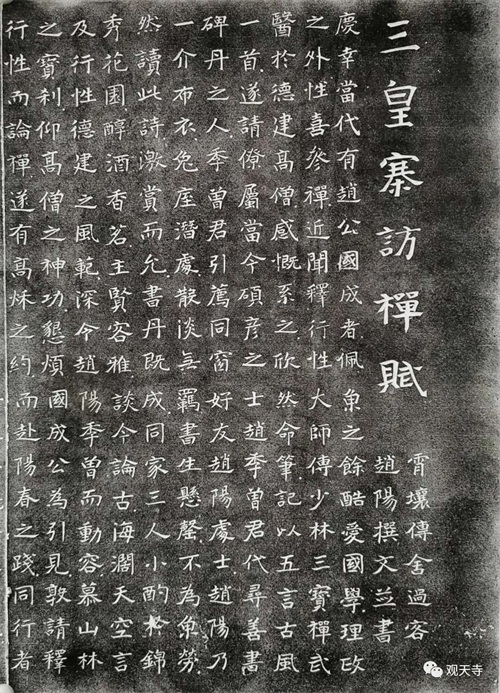 三皇寨訪禪賦
霄壤傳舍過客
趙陽撰文並書
慶幸當代有趙公國成者佩魚之餘酷愛國學理政
之外性喜參禪近聞釋行性大師傳少林三寶禪武
醫於德建高僧感慨系之欣然命筆記以五言古風
一首遂請僚屬當今碩彥之士趙季曾君代尋善書
碑丹之人季曾君引薦同窗好友趙陽處士趙陽乃
一介布衣兔座潛處散淡無羈書生懸罄不為魚勞
然讀此詩激賞而允書丹既成同家三人小酌於錦
秀花園醇酒香茗主賢客雅談今論古海濶天空言
及行性德建之風範深令趙陽季曾而動容慕山林
之寶利仰高僧之神功懇煩國成公為引見敦請釋
行性而論禪遂有高秌之約而赴陽春之踐同行者
观天寺